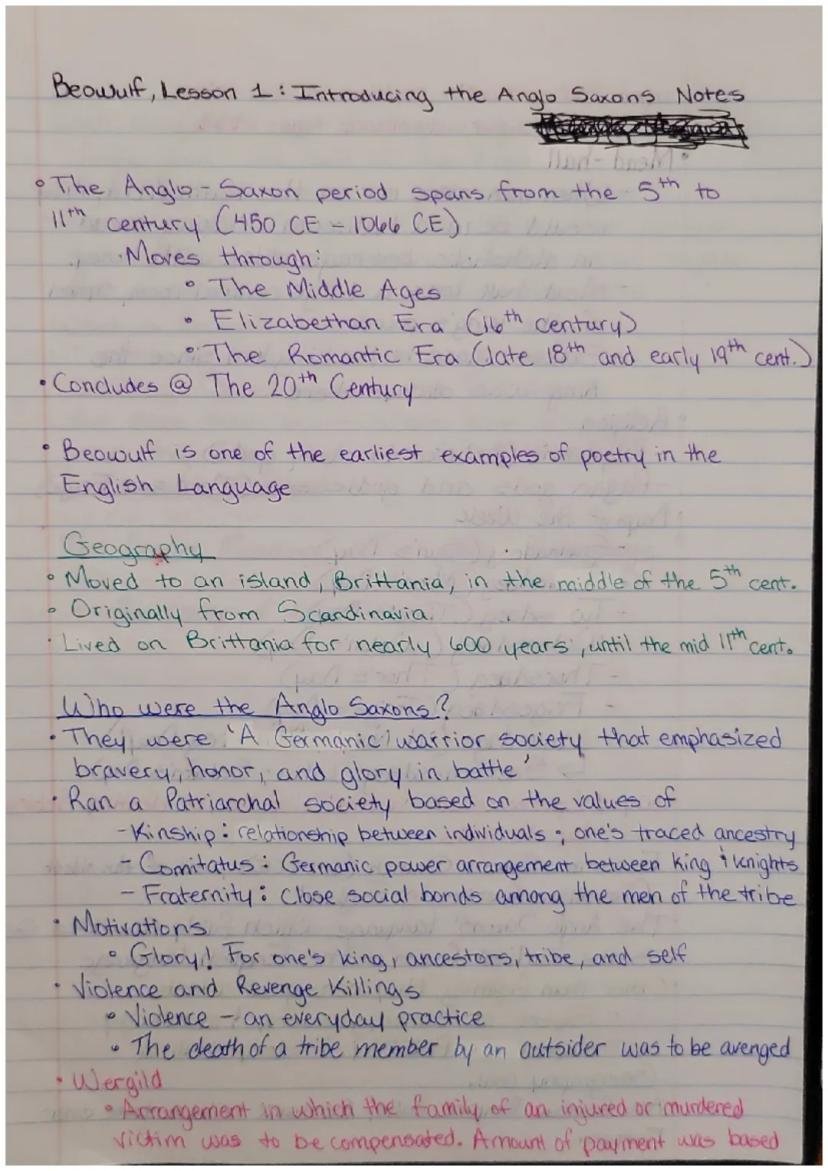 Beowulf, Lesson 1: Introducing the Anglo Saxons Notes
• The Anglo-Saxon period spans from the 5th to
11th century (450 CE - 1066 CE)
• Moves through:
• The Middle Ages
• Elizabethan Era (16th century)
• The Romantic Era (late 18th and early 19th cent.)
• Concludes @ The 20th Century
• Beowulf is one of the earliest examples of poetry in the
English Language
Geography
• Moved to an island, Brittania, in the middle of the 5th cent.
• Originally from Scandinavia.
• Lived on Brittania for nearly 600 years, until the mid 11th cent.
Who were the Anglo Saxons?
• They were 'A Germanic warrior society that emphasized
bravery, honor, and glory in battle'
• Ran a Patriarchal society based on the values of
- Kinship: relationship between individuals; one's traced ancestry
- Comitatus: Germanic power arrangement between king & knights
- Fraternity: Close social bonds among the men of the tribe
• Motivations
• Glory! For one's king, ancestors, tribe, and self
• Violence and Revenge Killings
• Violence - an everyday practice
• The death of a tribe member by an outsider was to be avenged
• Wergild
• Arrangement in which the family of an injured or murdered
victim was to be compensated. Amount of payment was based